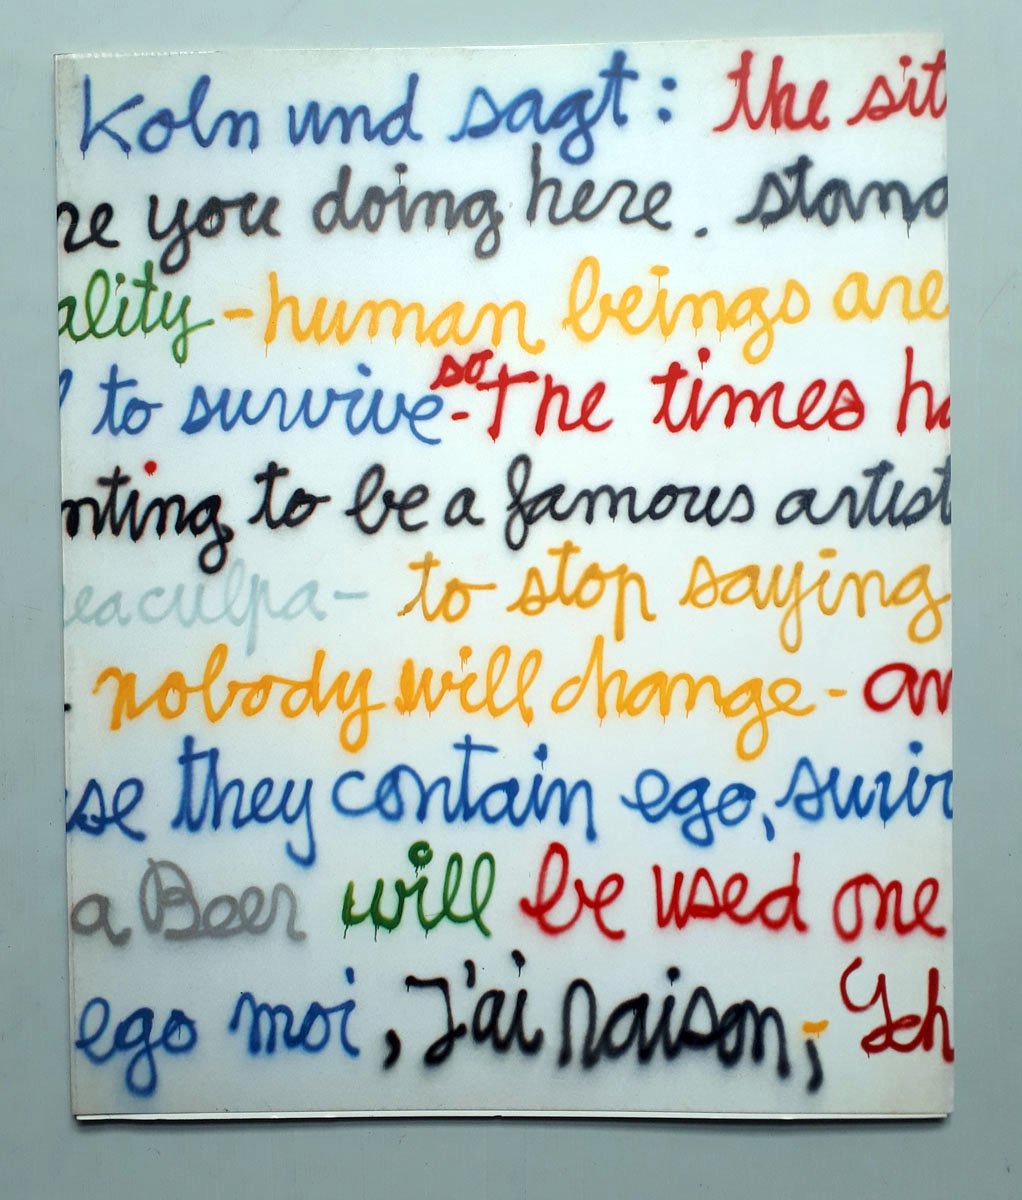 Koln und sagt: the sit
re you doing here. stand
ality - human beings are
to survive - so The times ha
nting to be a famous artist
eaculpa - to stop saying
. nobody will change - an
se they contain ego, surviv
a Beer will be used one
ego moi, J'ai raison; - Ich